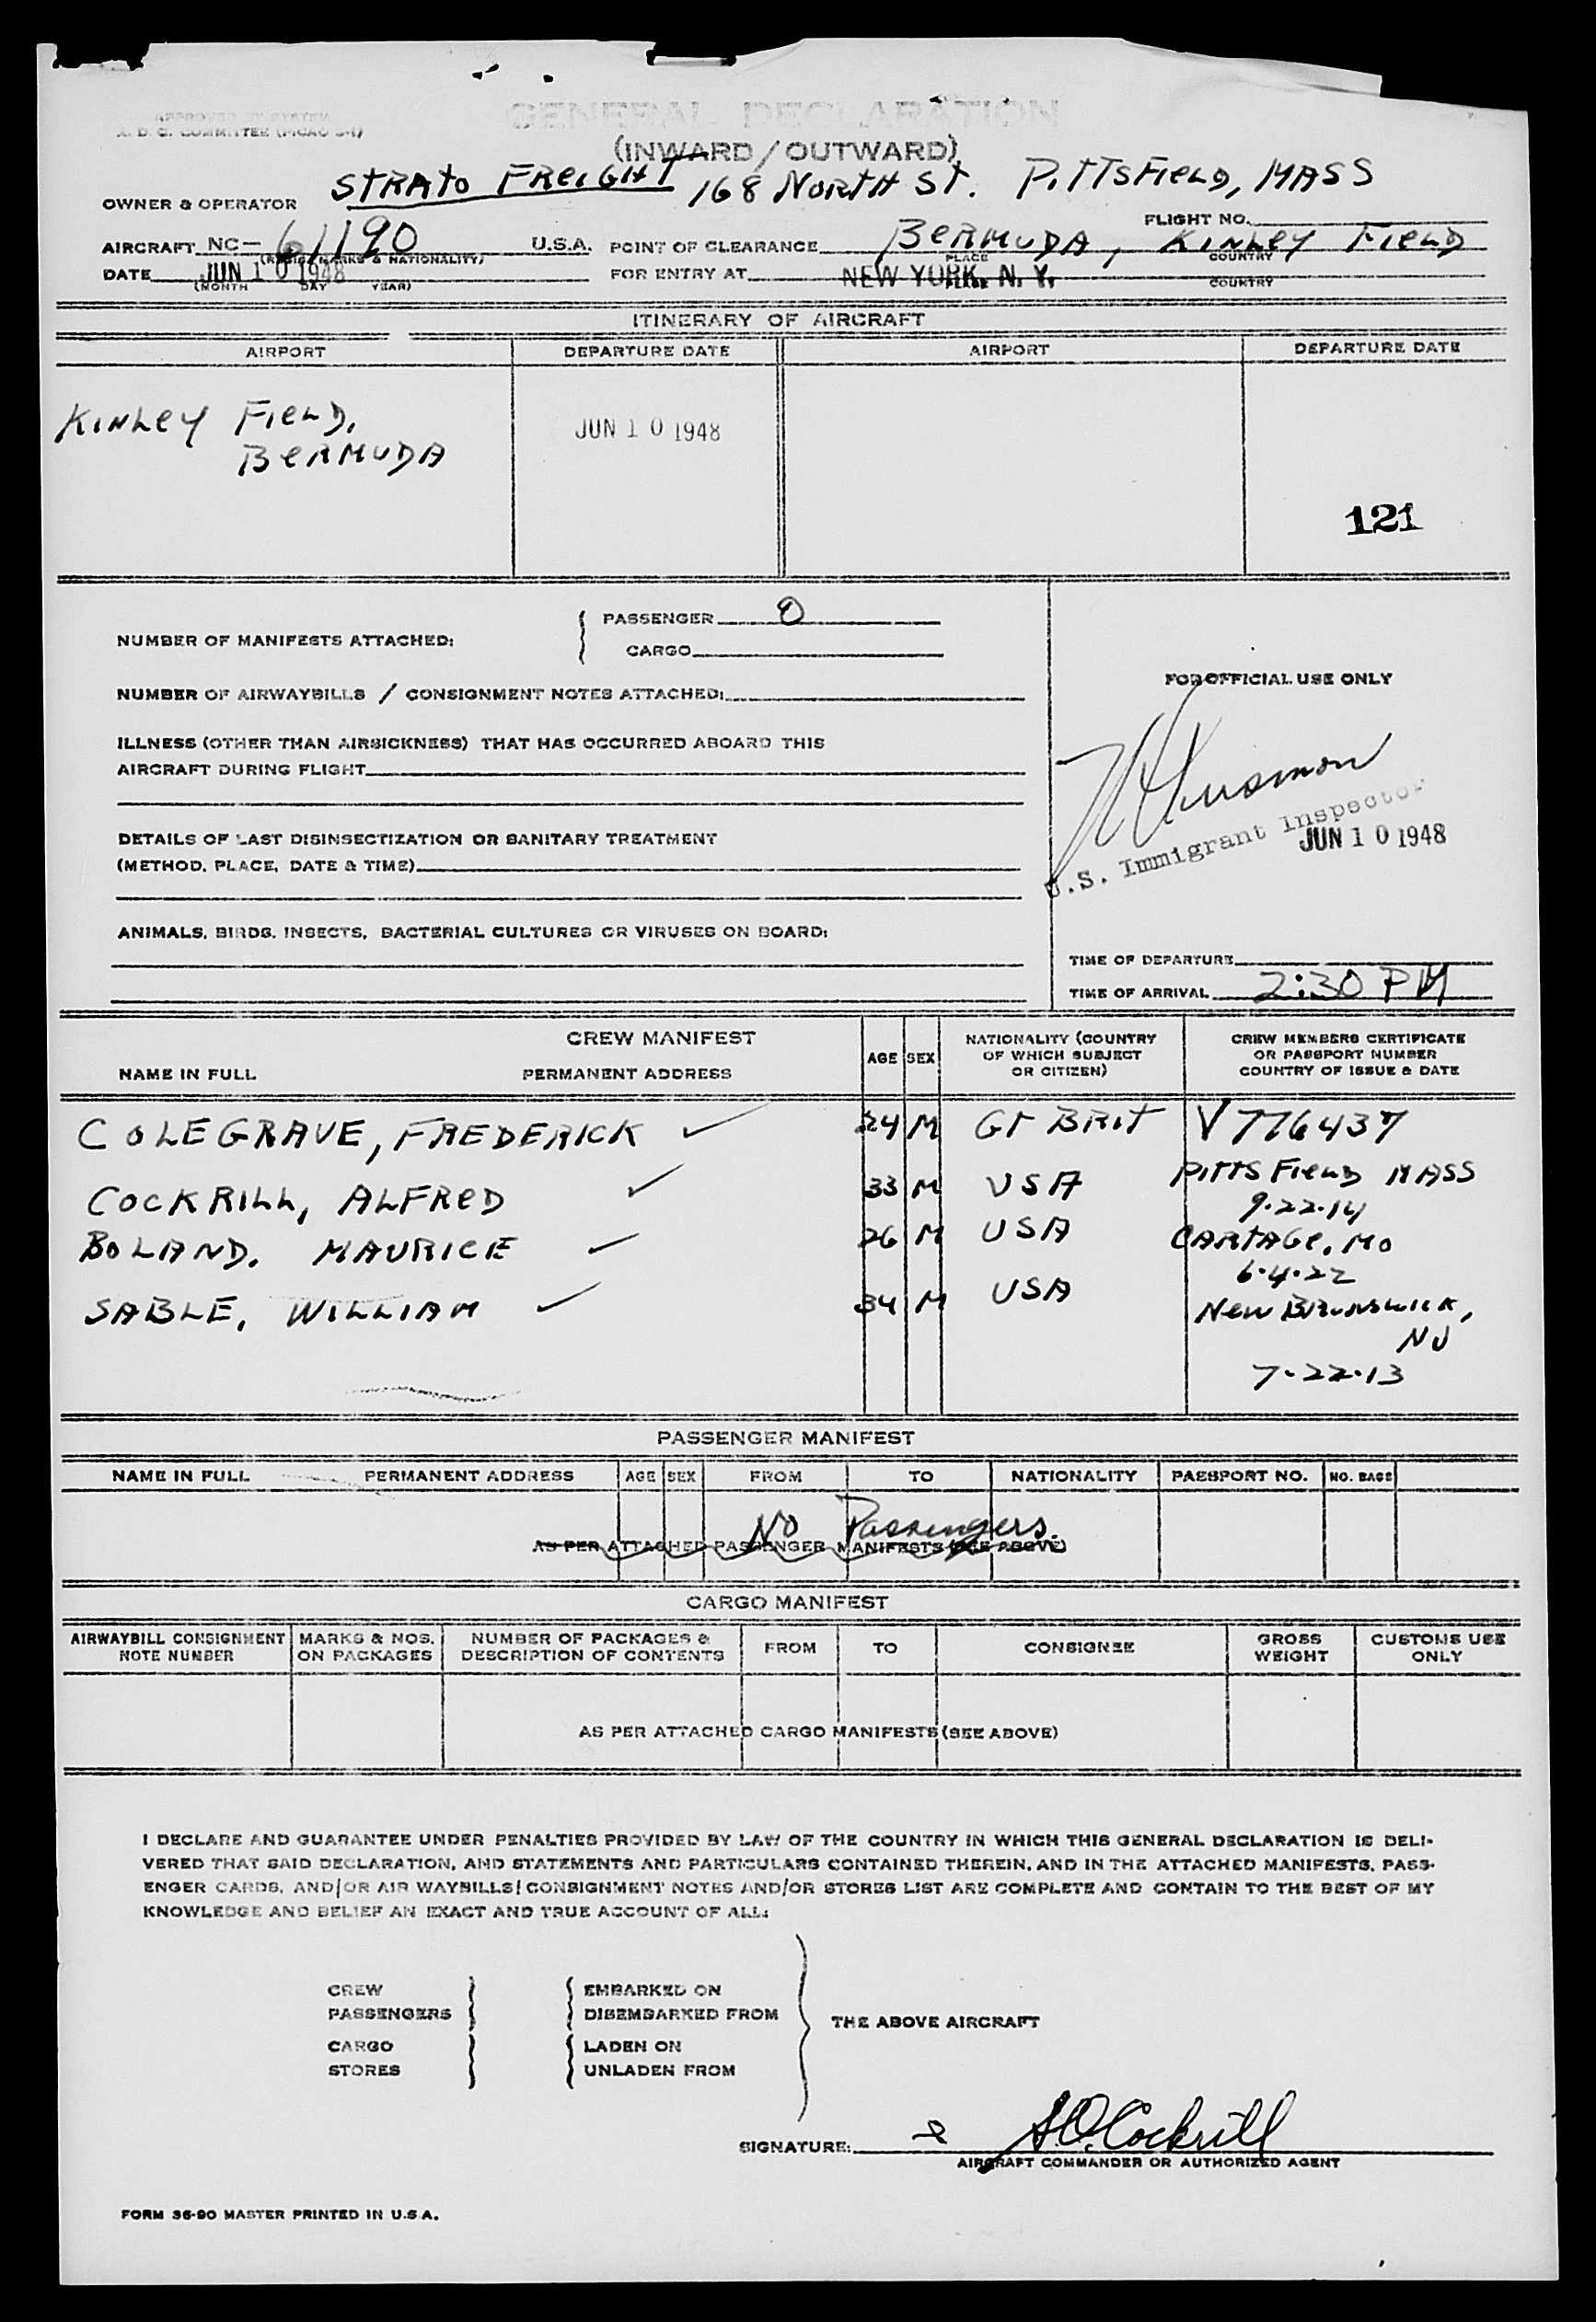 APPROVED BY SYSTEM
A. D. C. COMMITTEE (MCAC 5-1)
GENERAL DECLARATION
(INWARD / OUTWARD)
OWNER & OPERATOR STRATO FREIGHT 168 NORTH ST. PITTSFIELD, MASS
FLIGHT NO.
AIRCRAFT NC- 61190 U.S.A. POINT OF CLEARANCE BERMUDA, KINLEY FIELD
(REGIS. MARKS & NATIONALITY) PLACE COUNTRY
DATE JUN 10 1948 FOR ENTRY AT NEW YORK, N. Y.
(MONTH DAY YEAR) PLACE COUNTRY
ITINERARY OF AIRCRAFT
AIRPORT DEPARTURE DATE AIRPORT DEPARTURE DATE
KINLEY FIELD, JUN 10 1948
BERMUDA
121
NUMBER OF MANIFESTS ATTACHED: { PASSENGER 0
CARGO
FOR OFFICIAL USE ONLY
NUMBER OF AIRWAYBILLS / CONSIGNMENT NOTES ATTACHED:
ILLNESS (OTHER THAN AIRSICKNESS) THAT HAS OCCURRED ABOARD THIS
AIRCRAFT DURING FLIGHT
DETAILS OF LAST DISINSECTIZATION OR SANITARY TREATMENT
(METHOD, PLACE, DATE & TIME)
U.S. Immigrant Inspector
JUN 10 1948
ANIMALS, BIRDS, INSECTS, BACTERIAL CULTURES OR VIRUSES ON BOARD:
TIME OF DEPARTURE
TIME OF ARRIVAL 2:30 PM
CREW MANIFEST
NAME IN FULL PERMANENT ADDRESS AGE SEX NATIONALITY (COUNTRY OF WHICH SUBJECT OR CITIZEN) CREW MEMBERS CERTIFICATE OR PASSPORT NUMBER COUNTRY OF ISSUE & DATE
COLEGRAVE, FREDERICK ✓ 24 M GT BRIT V776437
COCKRILL, ALFRED ✓ 33 M USA PITTSFIELD MASS
9-22-14
BOLAND, MAURICE ✓ 26 M USA CARTAGE, MO
6-4-22
SABLE, WILLIAM ✓ 34 M USA NEW BRUNSWICK,
NJ
7-22-13
PASSENGER MANIFEST
NAME IN FULL PERMANENT ADDRESS AGE SEX FROM TO NATIONALITY PASSPORT NO. NO. BAGS
No Passengers.
AS PER ATTACHED PASSENGER MANIFESTS (SEE ABOVE)
CARGO MANIFEST
AIRWAYBILL CONSIGNMENT NOTE NUMBER MARKS & NOS. ON PACKAGES NUMBER OF PACKAGES & DESCRIPTION OF CONTENTS FROM TO CONSIGNEE GROSS WEIGHT CUSTOMS USE ONLY
AS PER ATTACHED CARGO MANIFESTS (SEE ABOVE)
I DECLARE AND GUARANTEE UNDER PENALTIES PROVIDED BY LAW OF THE COUNTRY IN WHICH THIS GENERAL DECLARATION IS DELI-
VERED THAT SAID DECLARATION, AND STATEMENTS AND PARTICULARS CONTAINED THEREIN, AND IN THE ATTACHED MANIFESTS, PASS-
ENGER CARDS, AND/OR AIR WAYBILLS/CONSIGNMENT NOTES AND/OR STORES LIST ARE COMPLETE AND CONTAIN TO THE BEST OF MY
KNOWLEDGE AND BELIEF AN EXACT AND TRUE ACCOUNT OF ALL:
CREW EMBARKED ON
PASSENGERS DISEMBARKED FROM
THE ABOVE AIRCRAFT
CARGO LADEN ON
STORES UNLADEN FROM
SIGNATURE: A.O. Cockrill
AIRCRAFT COMMANDER OR AUTHORIZED AGENT
FORM 36-90 MASTER PRINTED IN U.S.A.